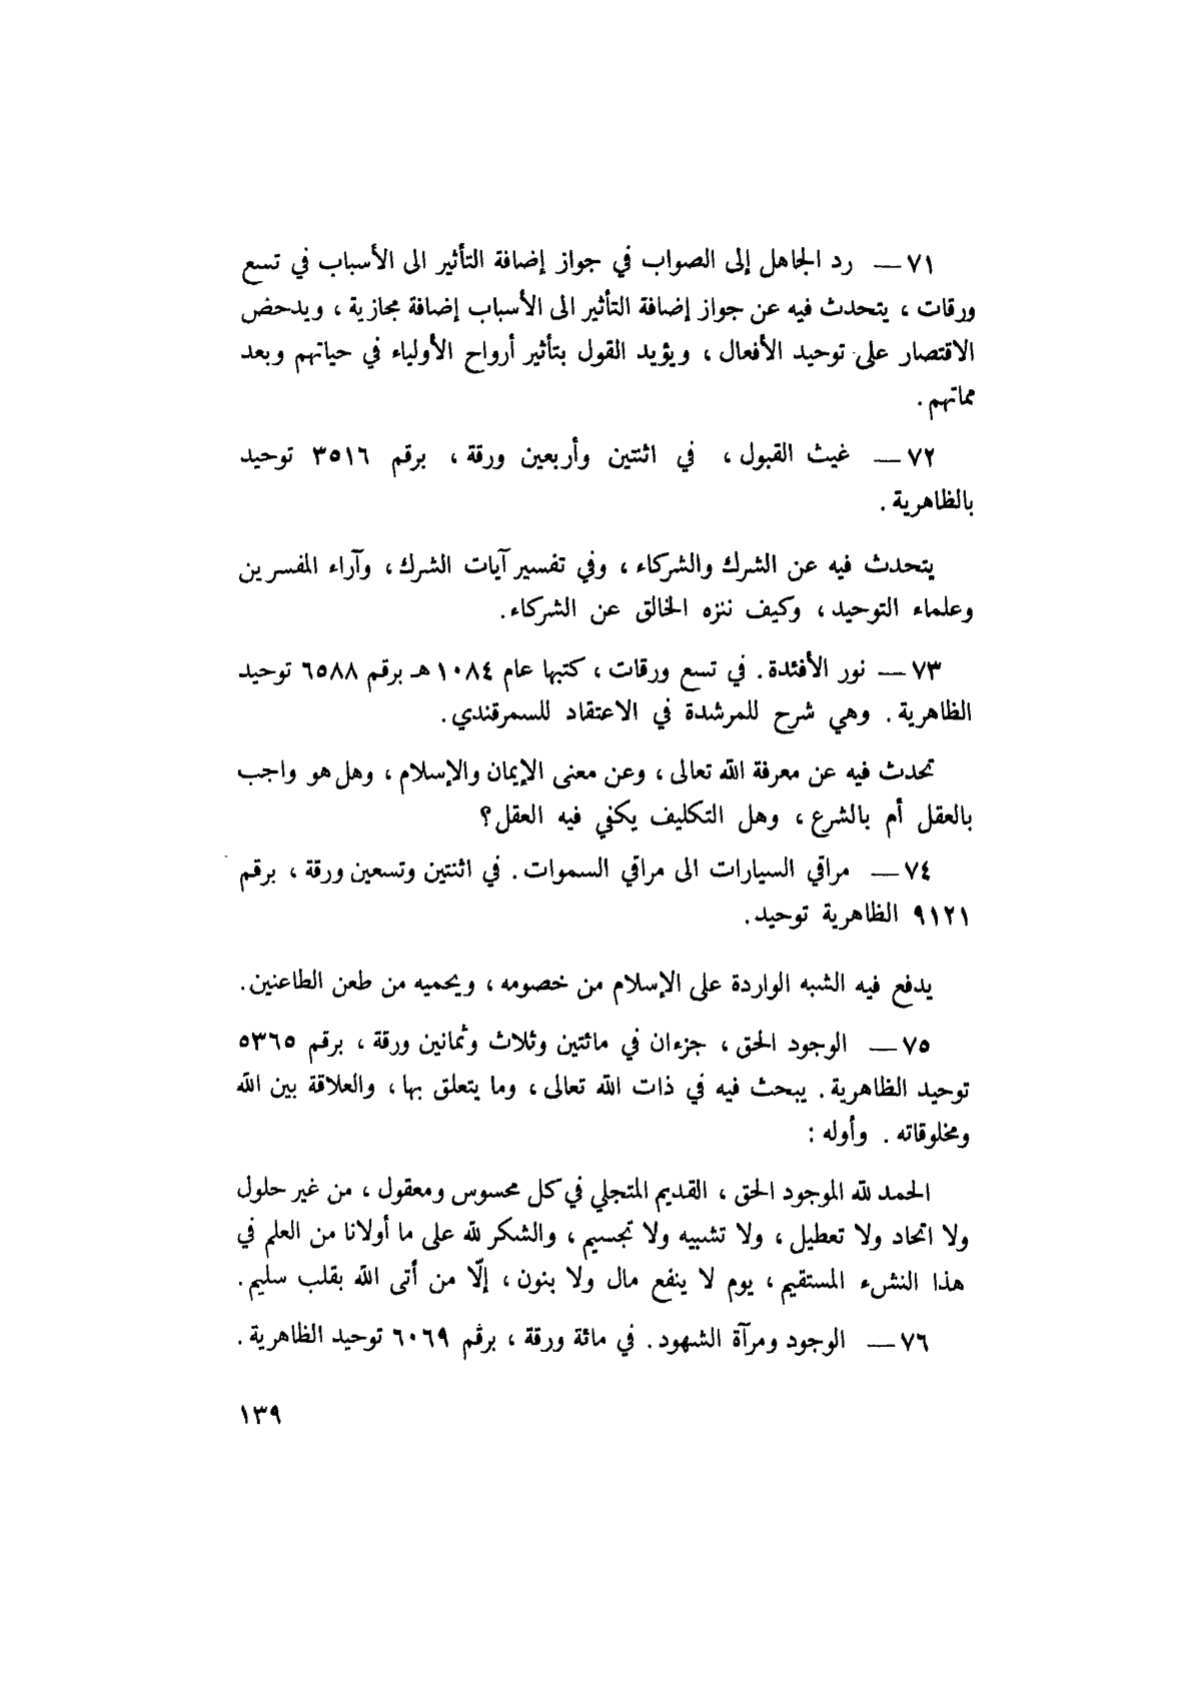 ٧١ — رد الجاهل إلى الصواب في جواز إضافة التأثير الى الأسباب في تسع
ورقات ، يتحدث فيه عن جواز إضافة التأثير الى الأسباب إضافة مجازية ، ويدحض
الاقتصار على توحيد الأفعال ، ويؤيد القول بتأثير أرواح الأولياء في حياتهم وبعد
مماتهم .
٧٢ — غيث القبول ، في اثنتين وأربعين ورقة ، برقم ٣٥١٦ توحيد
بالظاهرية .
يتحدث فيه عن الشرك والشركاء ، وفي تفسير آيات الشرك ، وآراء المفسرين
وعلماء التوحيد ، وكيف ننزه الخالق عن الشركاء .
٧٣ — نور الأفئدة . في تسع ورقات ، كتبها عام ١٠٨٤ هـ برقم ٦٥٨٨ توحيد
الظاهرية . وهي شرح للمرشدة في الاعتقاد للسمرقندي .
تحدث فيه عن معرفة الله تعالى ، وعن معنى الإيمان والإسلام ، وهل هو واجب
بالعقل أم بالشرع ، وهل التكليف يكفي فيه العقل ؟
٧٤ — مراقي السيارات الى مراقي السموات . في اثنتين وتسعين ورقة ، برقم
٩١٢١ الظاهرية توحيد .
يدفع فيه الشبه الواردة على الإسلام من خصومه ، ويحميه من طعن الطاعنين .
٧٥ — الوجود الحق ، جزءان في مائتين وثلاث وثمانين ورقة ، برقم ٥٣٦٥
توحيد الظاهرية . يبحث فيه في ذات الله تعالى ، وما يتعلق بها ، والعلاقة بين الله
ومخلوقاته . وأوله :
الحمد لله الموجود الحق ، القديم المتجلي في كل محسوس ومعقول ، من غير حلول
ولا اتحاد ولا تعطيل ، ولا تشبيه ولا تجسيم ، والشكر لله على ما أولانا من العلم في
هذا النشء المستقيم ، يوم لا ينفع مال ولا بنون ، إلّا من أتى الله بقلب سليم .
٧٦ — الوجود ومرآة الشهود . في مائة ورقة ، برقم ٦٠٦٩ توحيد الظاهرية .
١٣٩